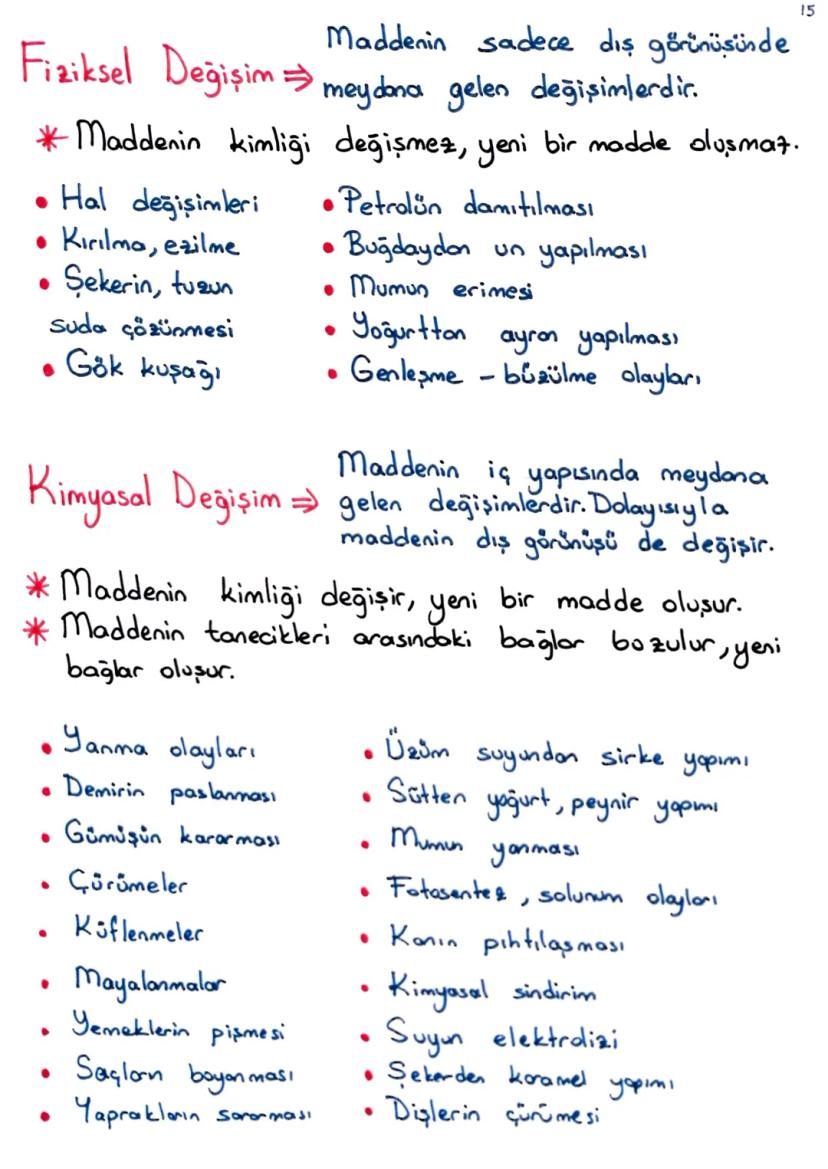 15
Fiziksel Değişim ⇒ Maddenin sadece dış görünüşünde
meydana gelen değişimlerdir.
* Maddenin kimliği değişmez, yeni bir madde oluşmaz.
• Hal değişimleri
• Kırılma, ezilme
• Şekerin, tuzun
suda çözünmesi
• Gök kuşağı
• Petrolün damıtılması
• Buğdaydan un yapılması
• Mumun erimesi
• Yoğurttan ayran yapılması
• Genleşme - büzülme olayları
Kimyasal Değişim ⇒ Maddenin iç yapısında meydana
gelen değişimlerdir. Dolayısıyla
maddenin dış görünüşü de değişir.
* Maddenin kimliği değişir, yeni bir madde oluşur.
* Maddenin tanecikleri arasındaki bağlar bozulur, yeni
bağlar oluşur.
• Yanma olayları
• Demirin paslanması
• Gümüşün kararması
• Çürümeler
• Küflenmeler
• Mayalanmalar
• Yemeklerin pişmesi
• Saçların boyanması
• Yaprakların sararması
• Üzüm suyundan sirke yapımı
• Sütten yoğurt, peynir yapımı
• Mumun yanması
• Fotosentez, solunum olayları
• Kanın pıhtılaşması
• Kimyasal sindirim
• Suyun elektrolizi
• Şekerden karamel yapımı
• Dişlerin çürümesi